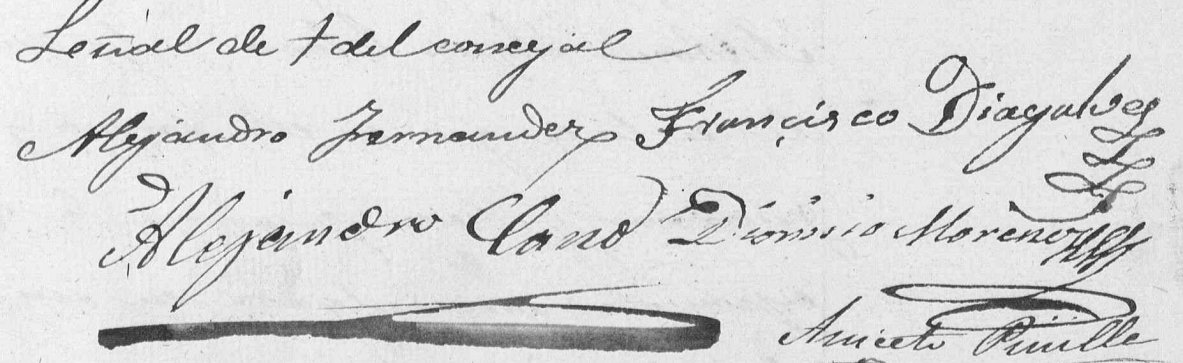 Señal de + del concejal
Alejandro Fernandez Francisco Diagalves
Alejandro Cano Dionisio Moreno
Aniceto Pinille